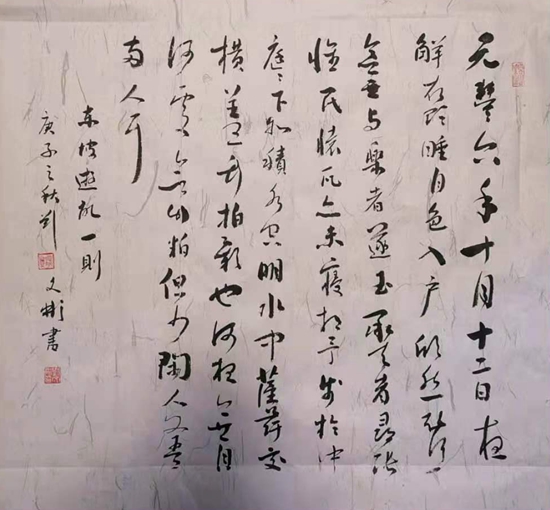 元豐六年十月十二日夜
解衣欲睡月色入户欣然起行
念無与樂者遂至承天寺尋張
懷民懷民亦未寢相与步於中
庭々下如積水空明水中藻荇交
橫蓋竹柏影也何夜無月
何處無竹柏但少閑人如吾
兩人耳
东坡遊記一則
庚子之秋刘
文彬書